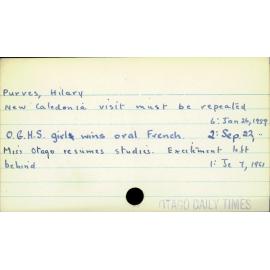 Purves, Hilary
New Caledonia visit must be repeated
6: Jan 26, 1959
O.G.H.S. girls wins oral French. 2: Sep. 22, -
Miss Otago resumes studies. Excitment left
behind 1: Je 7, 1961
OTAGO DAILY TIMES